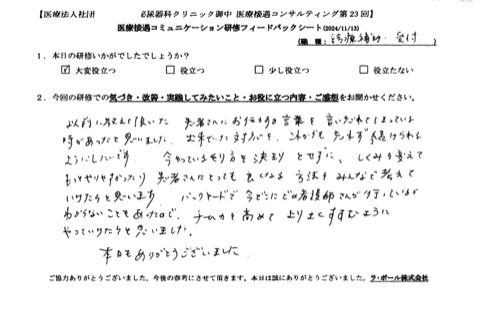 【医療法人社団　　　　　必尿器科クリニック御中 医療接遇コンサルティング第23回】
医療接遇コミュニケーション研修フィードバックシート(2024/11/13)
（職 種： 診療補助・受付 ）
1．本日の研修いかがでしたでしょうか？
☑ 大変役立つ　□ 役立つ　□ 少し役立つ　□ 役立たない
2．今回の研修での気づき・改善・実践してみたいこと・お役に立つ内容・ご感想をお聞かせください。
以前に教えて頂いた 患者さんに お待たせの言葉を 言い忘れてしまっている
時があったと思いました。 出来ていた対応を、これからも 忘れず 続けられる
ようにしたいです　今やっているやり方を 決まり とせずに、しくみを変えて
もっとやりやすかったり 患者さんにとっても 良くなる 方法を みんなで考えて
いけたらと思います　バックヤードで 今どこにどの看護師さんが行っているか
わからないこともあったので、チーム力を高めて よりよくすすむように
やっていけたらと思いました。
本日もありがとうございました
ご協力ありがとうございました、今後の参考にさせて頂きます。本日は誠にありがとうございました。ラ・ポール株式会社